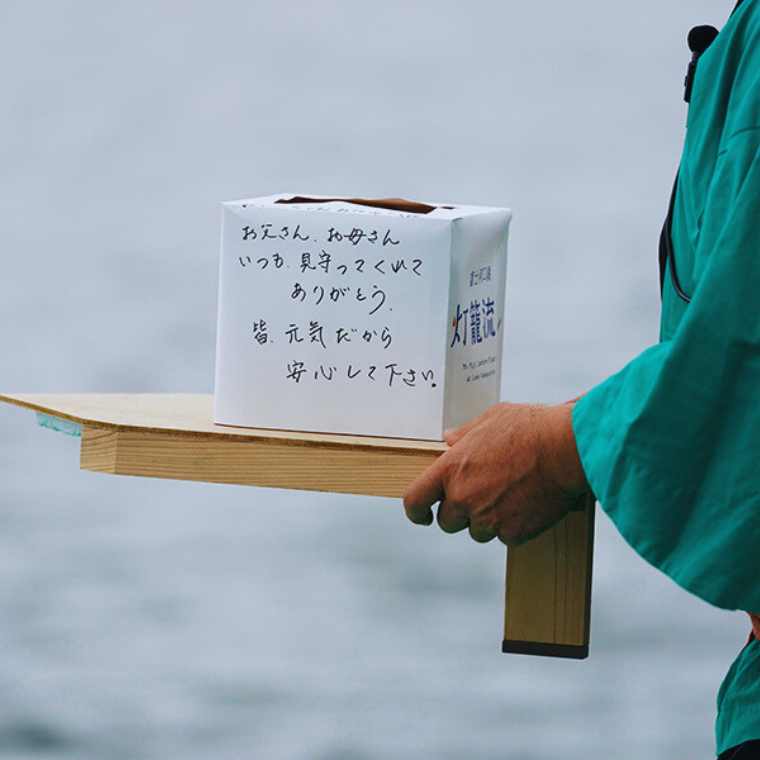 お父さん、お母さん
いつも、見守ってくれて
ありがとう。
皆、元気だから
安心して下さい。
富士河口湖
灯籠流し
Mt. Fuji Lantern Float
at Lake Kawaguchi